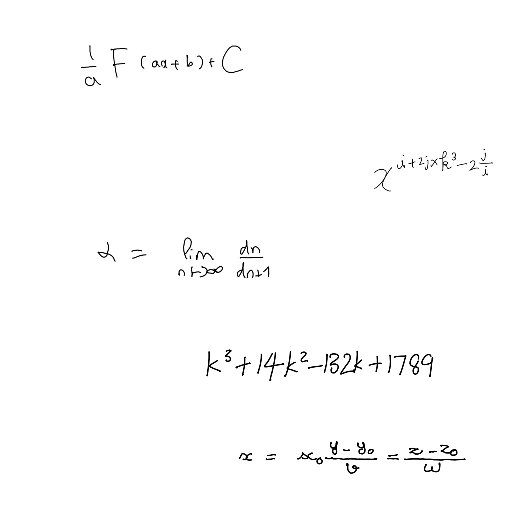 \frac{1}{a} F (aa+b)+C
x^{i+2j \times k^3-2\frac{j}{i}}
\alpha = \lim_{n \mapsto \infty} \frac{dn}{dn+1}
k^3+14k^2-132k+1789
x = x_0 \frac{y-y_0}{v} = \frac{z-z_0}{w}